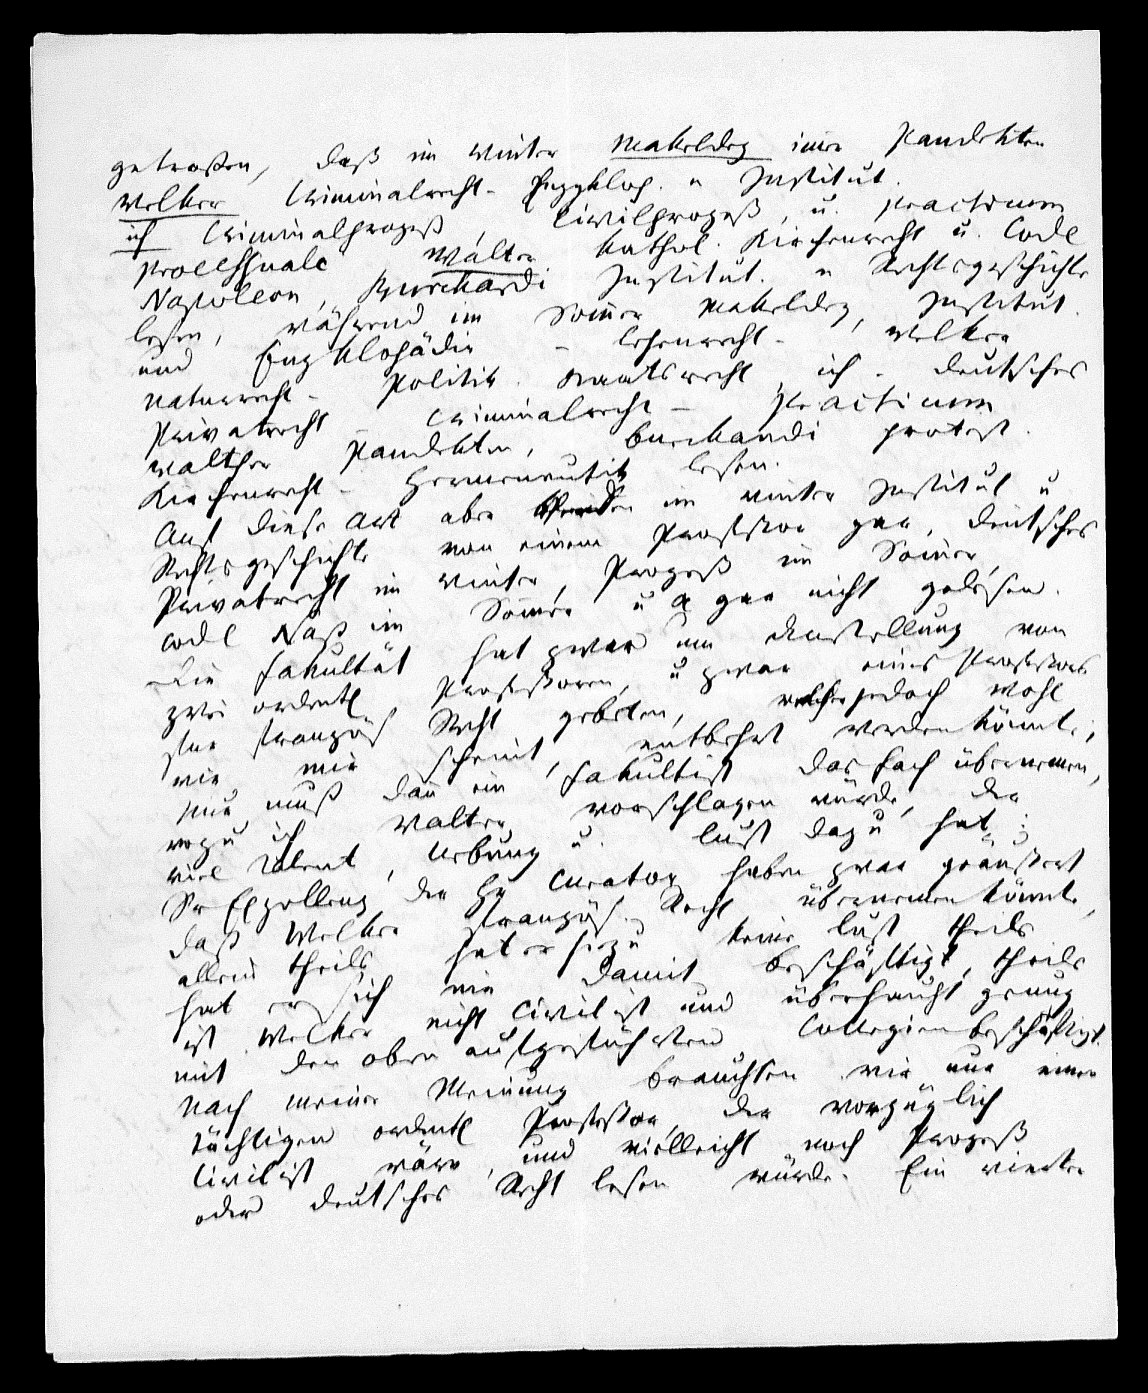 getroffen, daß im Winter Makeldey immer Pandekten
Welker Criminalrecht - Enzyklop. u Institut.
ich Criminalprozeß, Civilprozeß, u. practicum
processuale Walter kathol. Kirchenrecht u. Code
Napoleon, Burchardi Institut. u Rechtsgeschichte
lesen, während im Som̄er Makeldey, Institut.
und Enzyklopädie - Lehenrecht - Welker
Naturrecht - Politik. Staatsrecht, ich - deutsches
Privatrecht - Criminalrecht - practicum
Walther Pandekten, Burchardi protest.
Kirchenrecht - Hermeneutik lesen.
Auf diese Art aber im Winter Institut u
Rechtsgeschichte von einem Professor gar, deutsches
Privatrecht im Winter, Prozeß im Som̄er,
Code Nap im Som̄er u gar nicht gelesen.
Die Fakultät hat zwar um Anstellung von
zwei ordentl Professoren, u zwar eines Professors
für französ Recht gebeten, welcher jedoch wohl
wie mir scheint, entbehrt werden könnte;
nur muß dan̄ ein Fakultist das Fach übernemen,
wozu ich Walter vorschlagen würde, der
viel Talent, Uebung u. Lust dazu hat;
Sr Exzellenz der Hr Curator haben zwar geäußert
daß Welker französ. Recht übernemen könnte,
allein theils hat er hiezu keine Lust theils
hat er sich nie damit beschäftigt, theils
ist Welker nicht Civilist und überhaupt genug
mit den oben aufgeführten Collegien beschäftigt.
Nach meiner Meinung brauchten wir nur einen
tüchtigen ordentl Professor, der vorzüglich
Civilist wäre, und vielleicht noch Prozeß
oder deutsches Recht lesen würde. Ein vierter